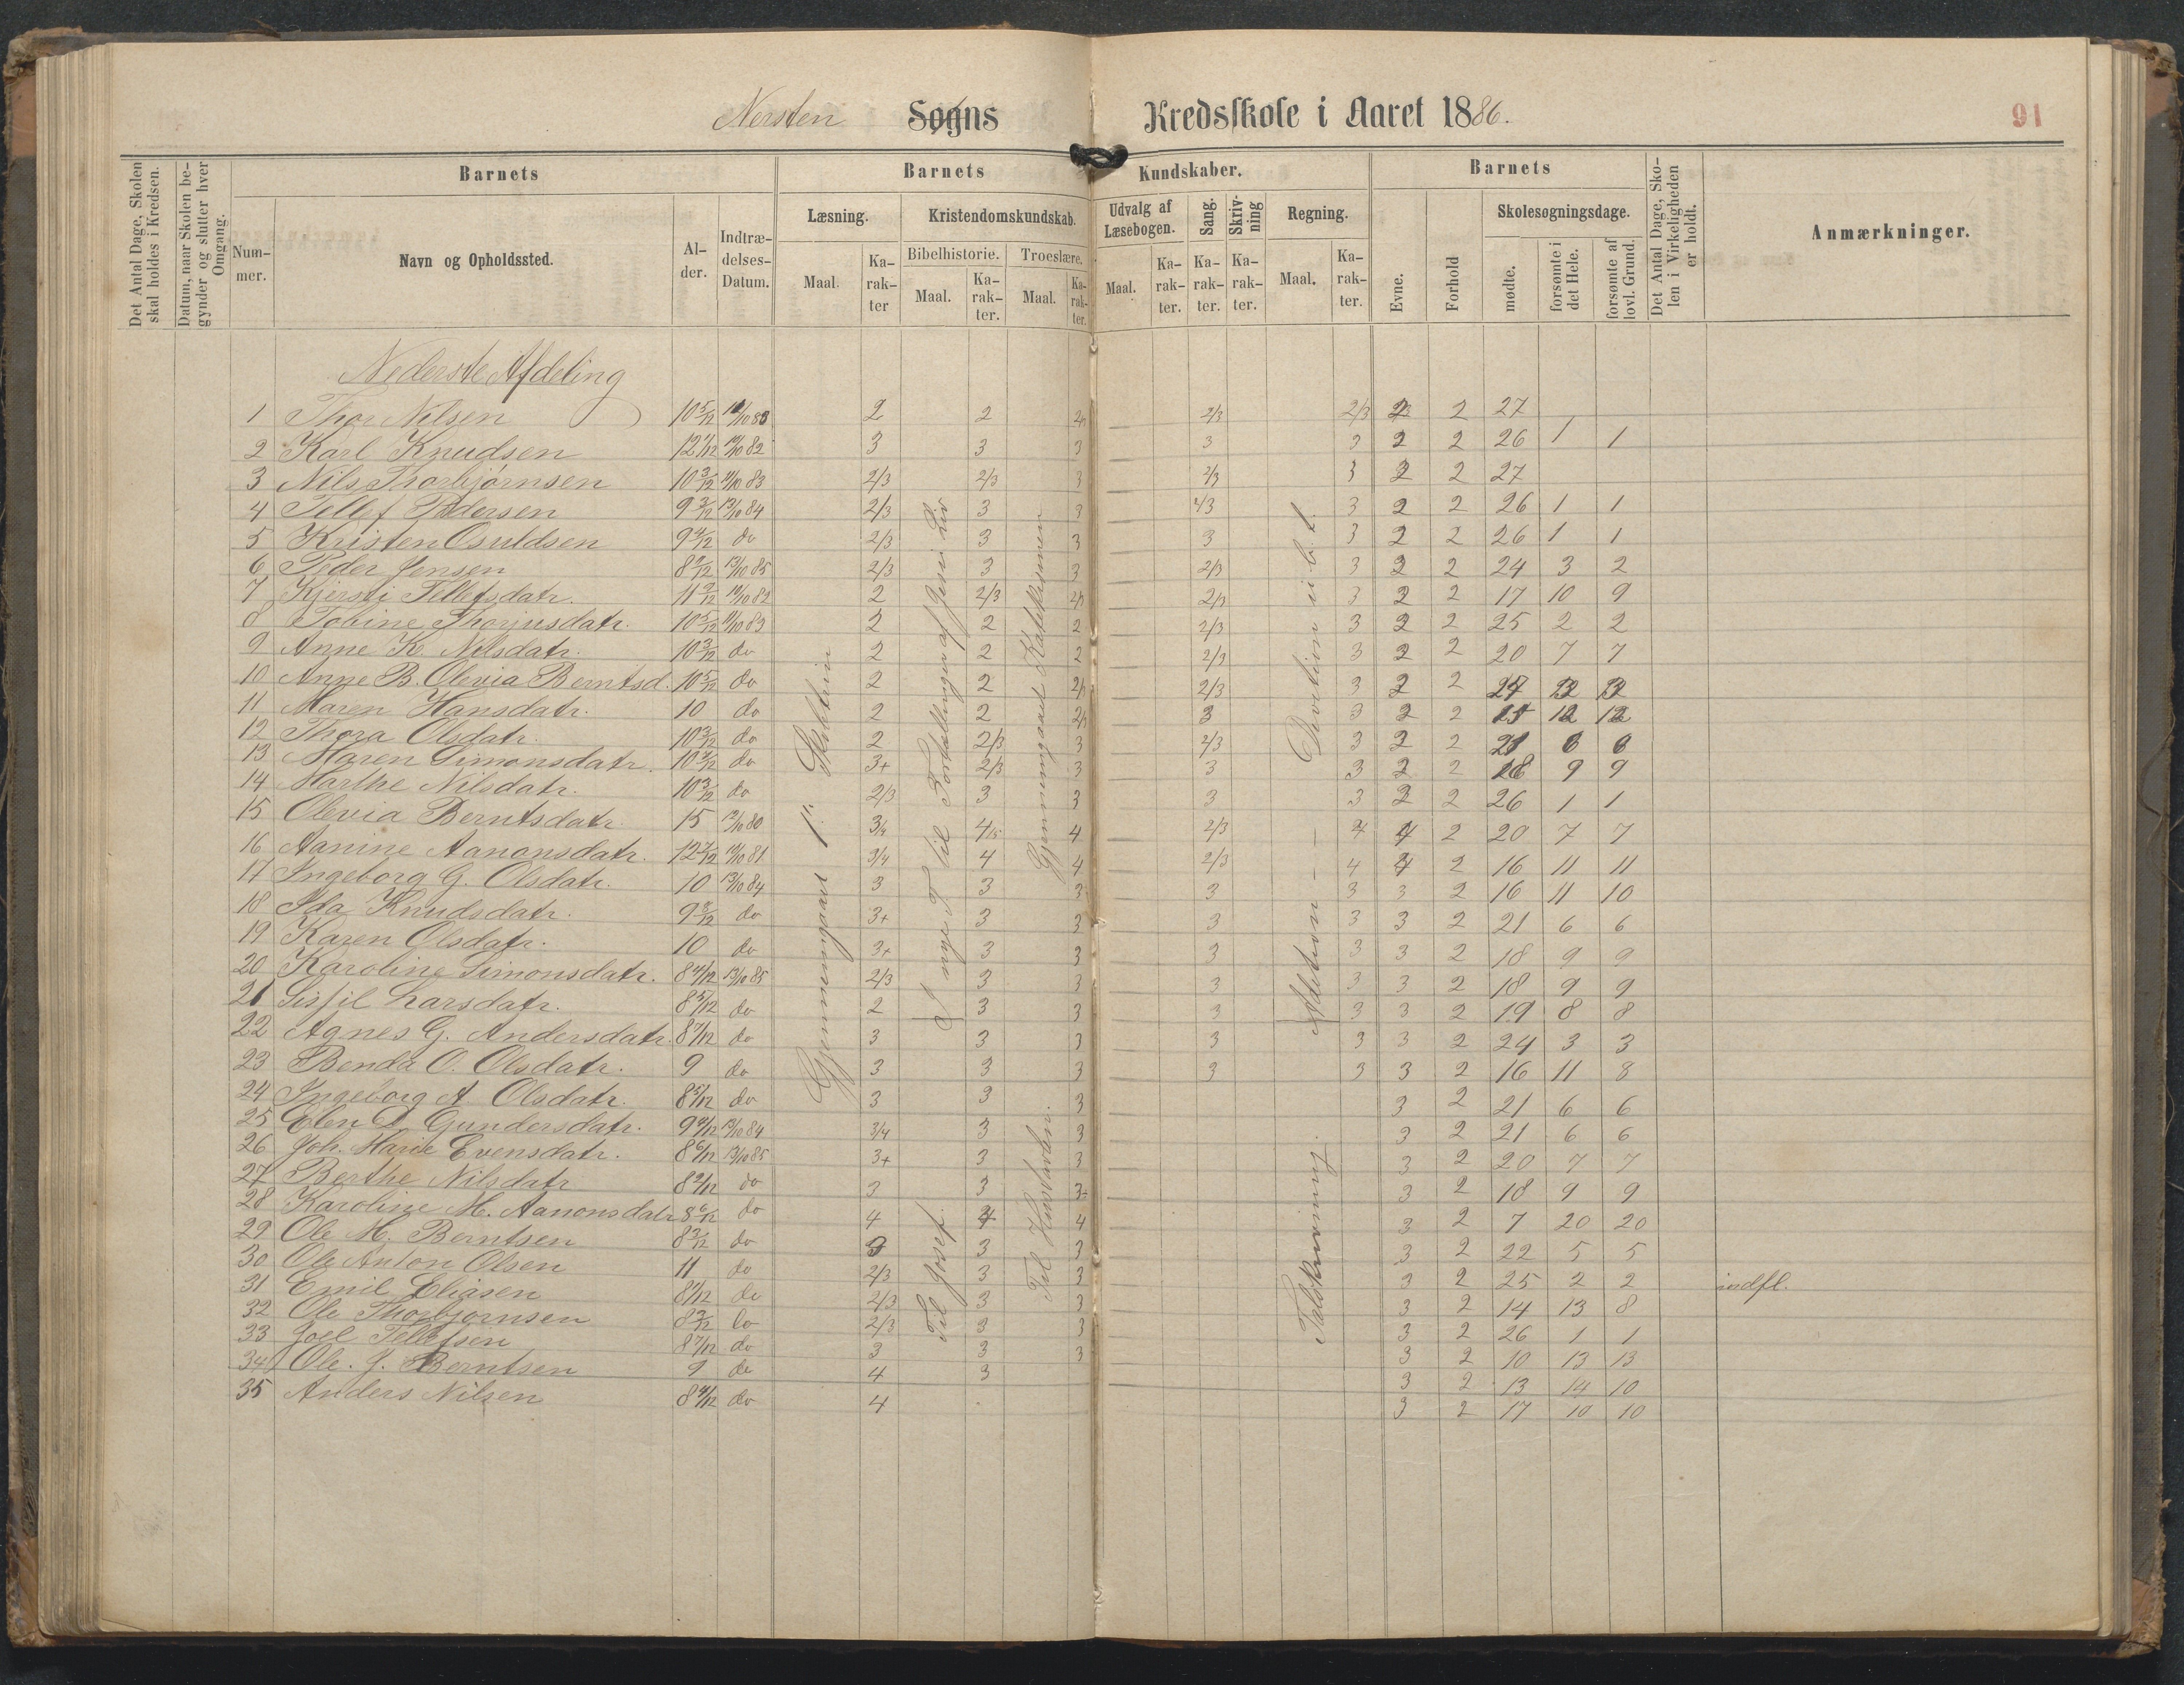 Nersten Sogns Kredsskole i Aaret 1886.
91
Det Antal Dage, Skolen skal holdes i Kredsen.
Datum, naar Skolen begynder og slutter hver Omgang.
Barnets
Nummer.
Navn og Opholdssted.
Alder.
Indtrædelses-Datum.
Barnets Kundskaber.
Læsning.
Maal.
Karakter
Kristendomskundskab.
Bibelhistorie.
Maal.
Karakter.
Troeslære.
Maal.
Karakter.
Udvalg af Læsebogen.
Maal.
Karakter.
Sang.
Karakter.
Skrivning
Karakter.
Regning.
Maal.
Karakter.
Barnets
Evne.
Forhold
Skolesøgningsdage.
mødte.
forsømte i det Hele.
forsømte af lovl. Grund.
Det Antal Dage, Skolen i Virkeligheden er holdt.
Anmærkninger.
Nederste Afdeling
1 Thor Nilsen 10 5/12 2 2 2/3 2/3 2 2 27
2 Karl Knudsen 12 1/12 3 3 3 3 3 2 2 26 1 1
3 Nils Thorbjørnsen 10 3/12 2/3 2/3 3 2/3 3 2 2 27
4 Tellef Pedersen 9 3/12 13/10 84 2/3 3 3 2/3 3 2 2 26 1 1
5 Kristen Osuldsen 9 4/12 do 2/3 3 3 3 3 2 2 26 1 1
6 Peder Jensen 13/10 85 2/3 3 3 2/3 3 2 2 24 3 2
7 Kjersti Tellefsdatr. 2 2/3 2/3 3 2 2 17 10 9
8 Tobine Thorjusdatr. 10 5/12 2 2 2 2/3 3 2 2 25 2 2
9 Anne K. Nilsdatr. 10 3/12 do 2 2 2 2/3 3 2 2 20 7 7
10 Anne B. Olevia Berntsd. 10 5/12 do 2 2 2/3 3 2 2
11 Maren Hansdatr. 10 do 2 2 3 3 2 2 12 12
12 Thora Olsdatr. 10 3/12 do 2 2/3 3 2/3 3 2 2 21 6 6
13 Maren Simonsdatr. do 3+ 2/3 3 3 3 2 2 18 9 9
14 Marthe Nilsdatr. 10 3/12 do 2/3 3 3 3 3 2 2 26 1 1
15 Olevia Berntsdatr. 15 3/4 4 2/3 4 4 2 20 7 7
16 Aanine Aanonsdatr. 3/4 4 4 2/3 4 4 2 16 11 11
17 Ingeborg G. Olsdatr. 10 13/10 84 3 3 3 3 3 3 2 16 11 10
18 Ida Knudsdatr. do 3+ 3 3 3 3 3 2 21 6 6
19 Karen Olsdatr. 10 do 3+ 3 3 3 3 3 2 18 9 9
20 Karoline Simonsdatr. 8 4/12 13/10 85 2/3 3 3 3 3 3 2 18 9 9
21 Sissil Larsdatr. 8 5/12 do 2 3 3 3 3 3 2 19 8 8
22 Agnes G. Andersdatr. 8 7/12 do 3 3 3 3 3 3 2 24 3 3
23 Benda O. Olsdatr. 9 do 3 3 3 3 3 3 2 16 11 8
24 Ingeborg A Olsdatr. 8 5/12 do 3 3 3 3 2 21 6 6
25 Elen D. Gundersdatr. 13/10 84 3/4 3 3 3 2 21 6 6
26 Joh. Marie Evensdatr. 8 6/12 13/10 85 3+ 3 3 3 2 20 7 7
27 Berthe Nilsdatr do 3 3 3 3 2 18 9 9
28 Karoline M. Aanonsdatr 8 6/12 do 4 4 4 3 2 7 20 20
29 Ole M. Berntsen 8 3/12 do 3 3 3 3 2 22 5 5
30 Ole Anton Olsen 11 do 2/3 3 3 3 2 25 2 2 indfl.
31 Emil Eliasen do 2/3 3 3 3 2 14 13 8
32 Ole Thorbjørnsen do 2/3 3 3 3 2 26 1 1
33 Joel Tellefsen 8 7/12 do 3 3 3 3 2 10 13 13
34 Ole. J. Berntsen 9 do 4 3 3 2 13 14 10
35 Anders Nilsen do 4 3 2 17 10 10
Gjennemgaaet 1ste Skoletrin
2 nye T til Fortællinger af Jesu Liv
Til Josef.
Gjennemgaaet Katekismen
Til Hustavlen.
Addition – – Divition i b. t.
Talskrivning.